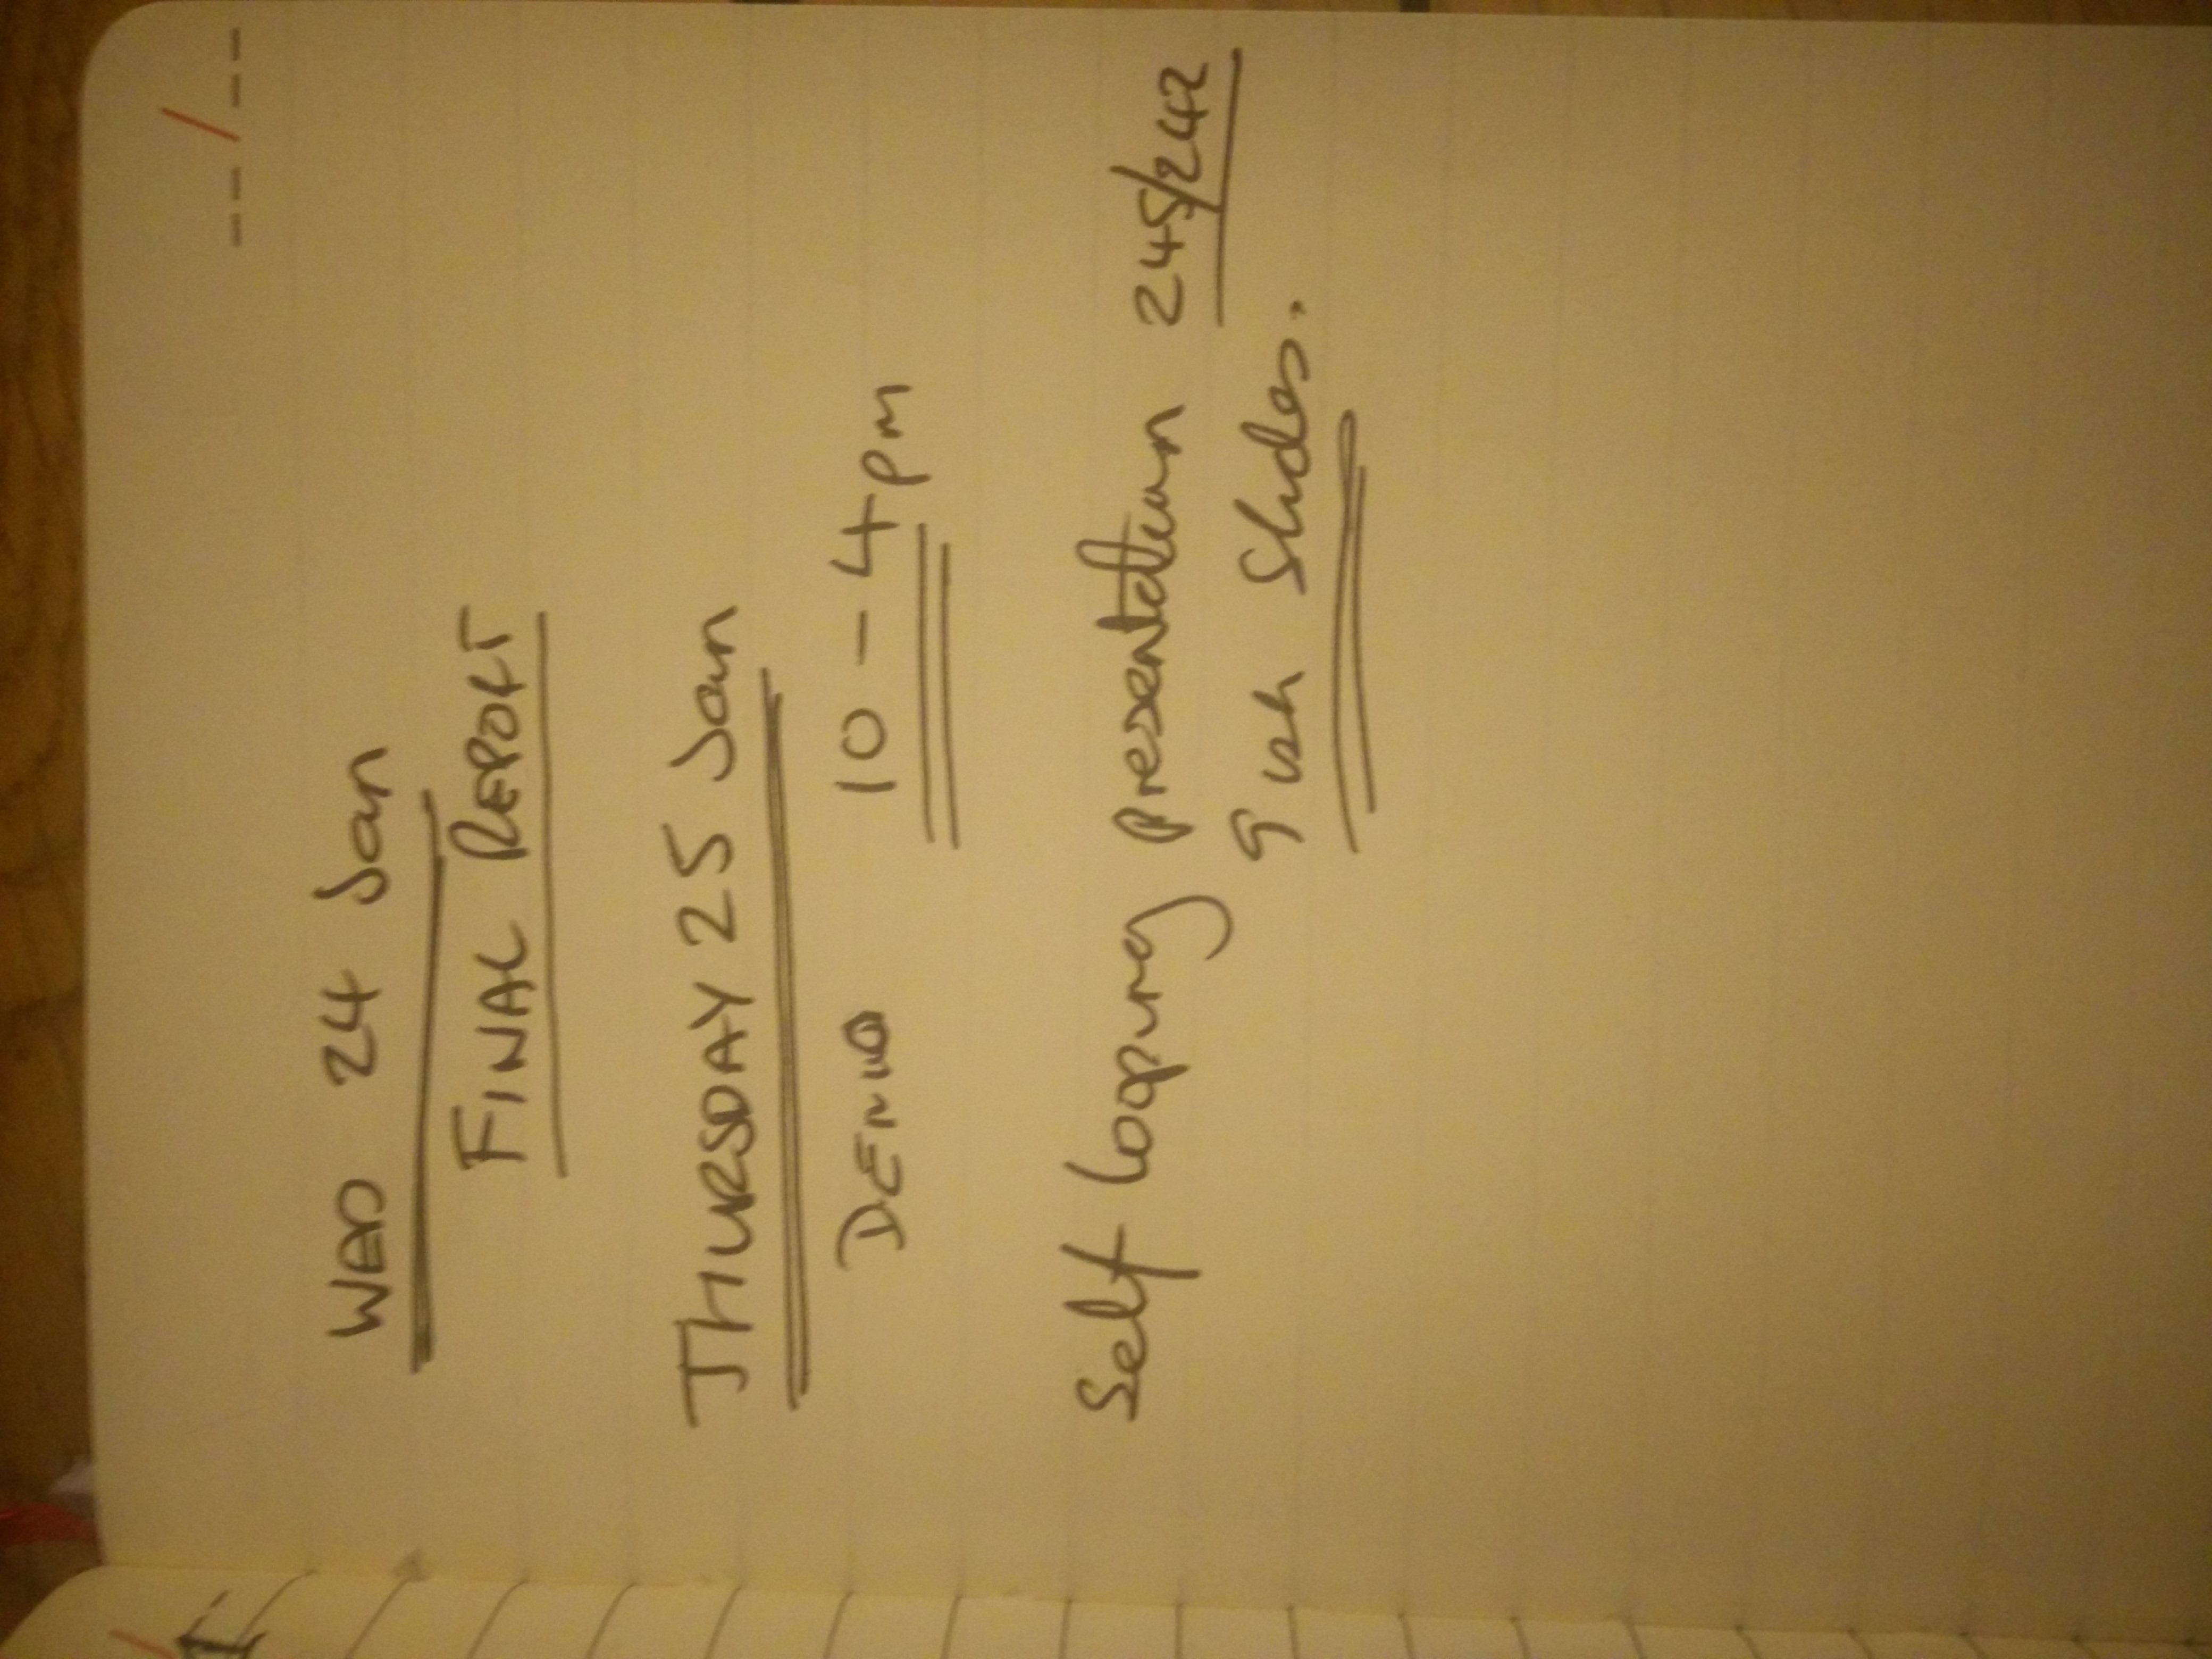 WED 24 Jan
FINAL REPORT
THURSDAY 25 Jan
DEMO 10 - 4pm
Self looping presentation 245/242
9 ish slides.